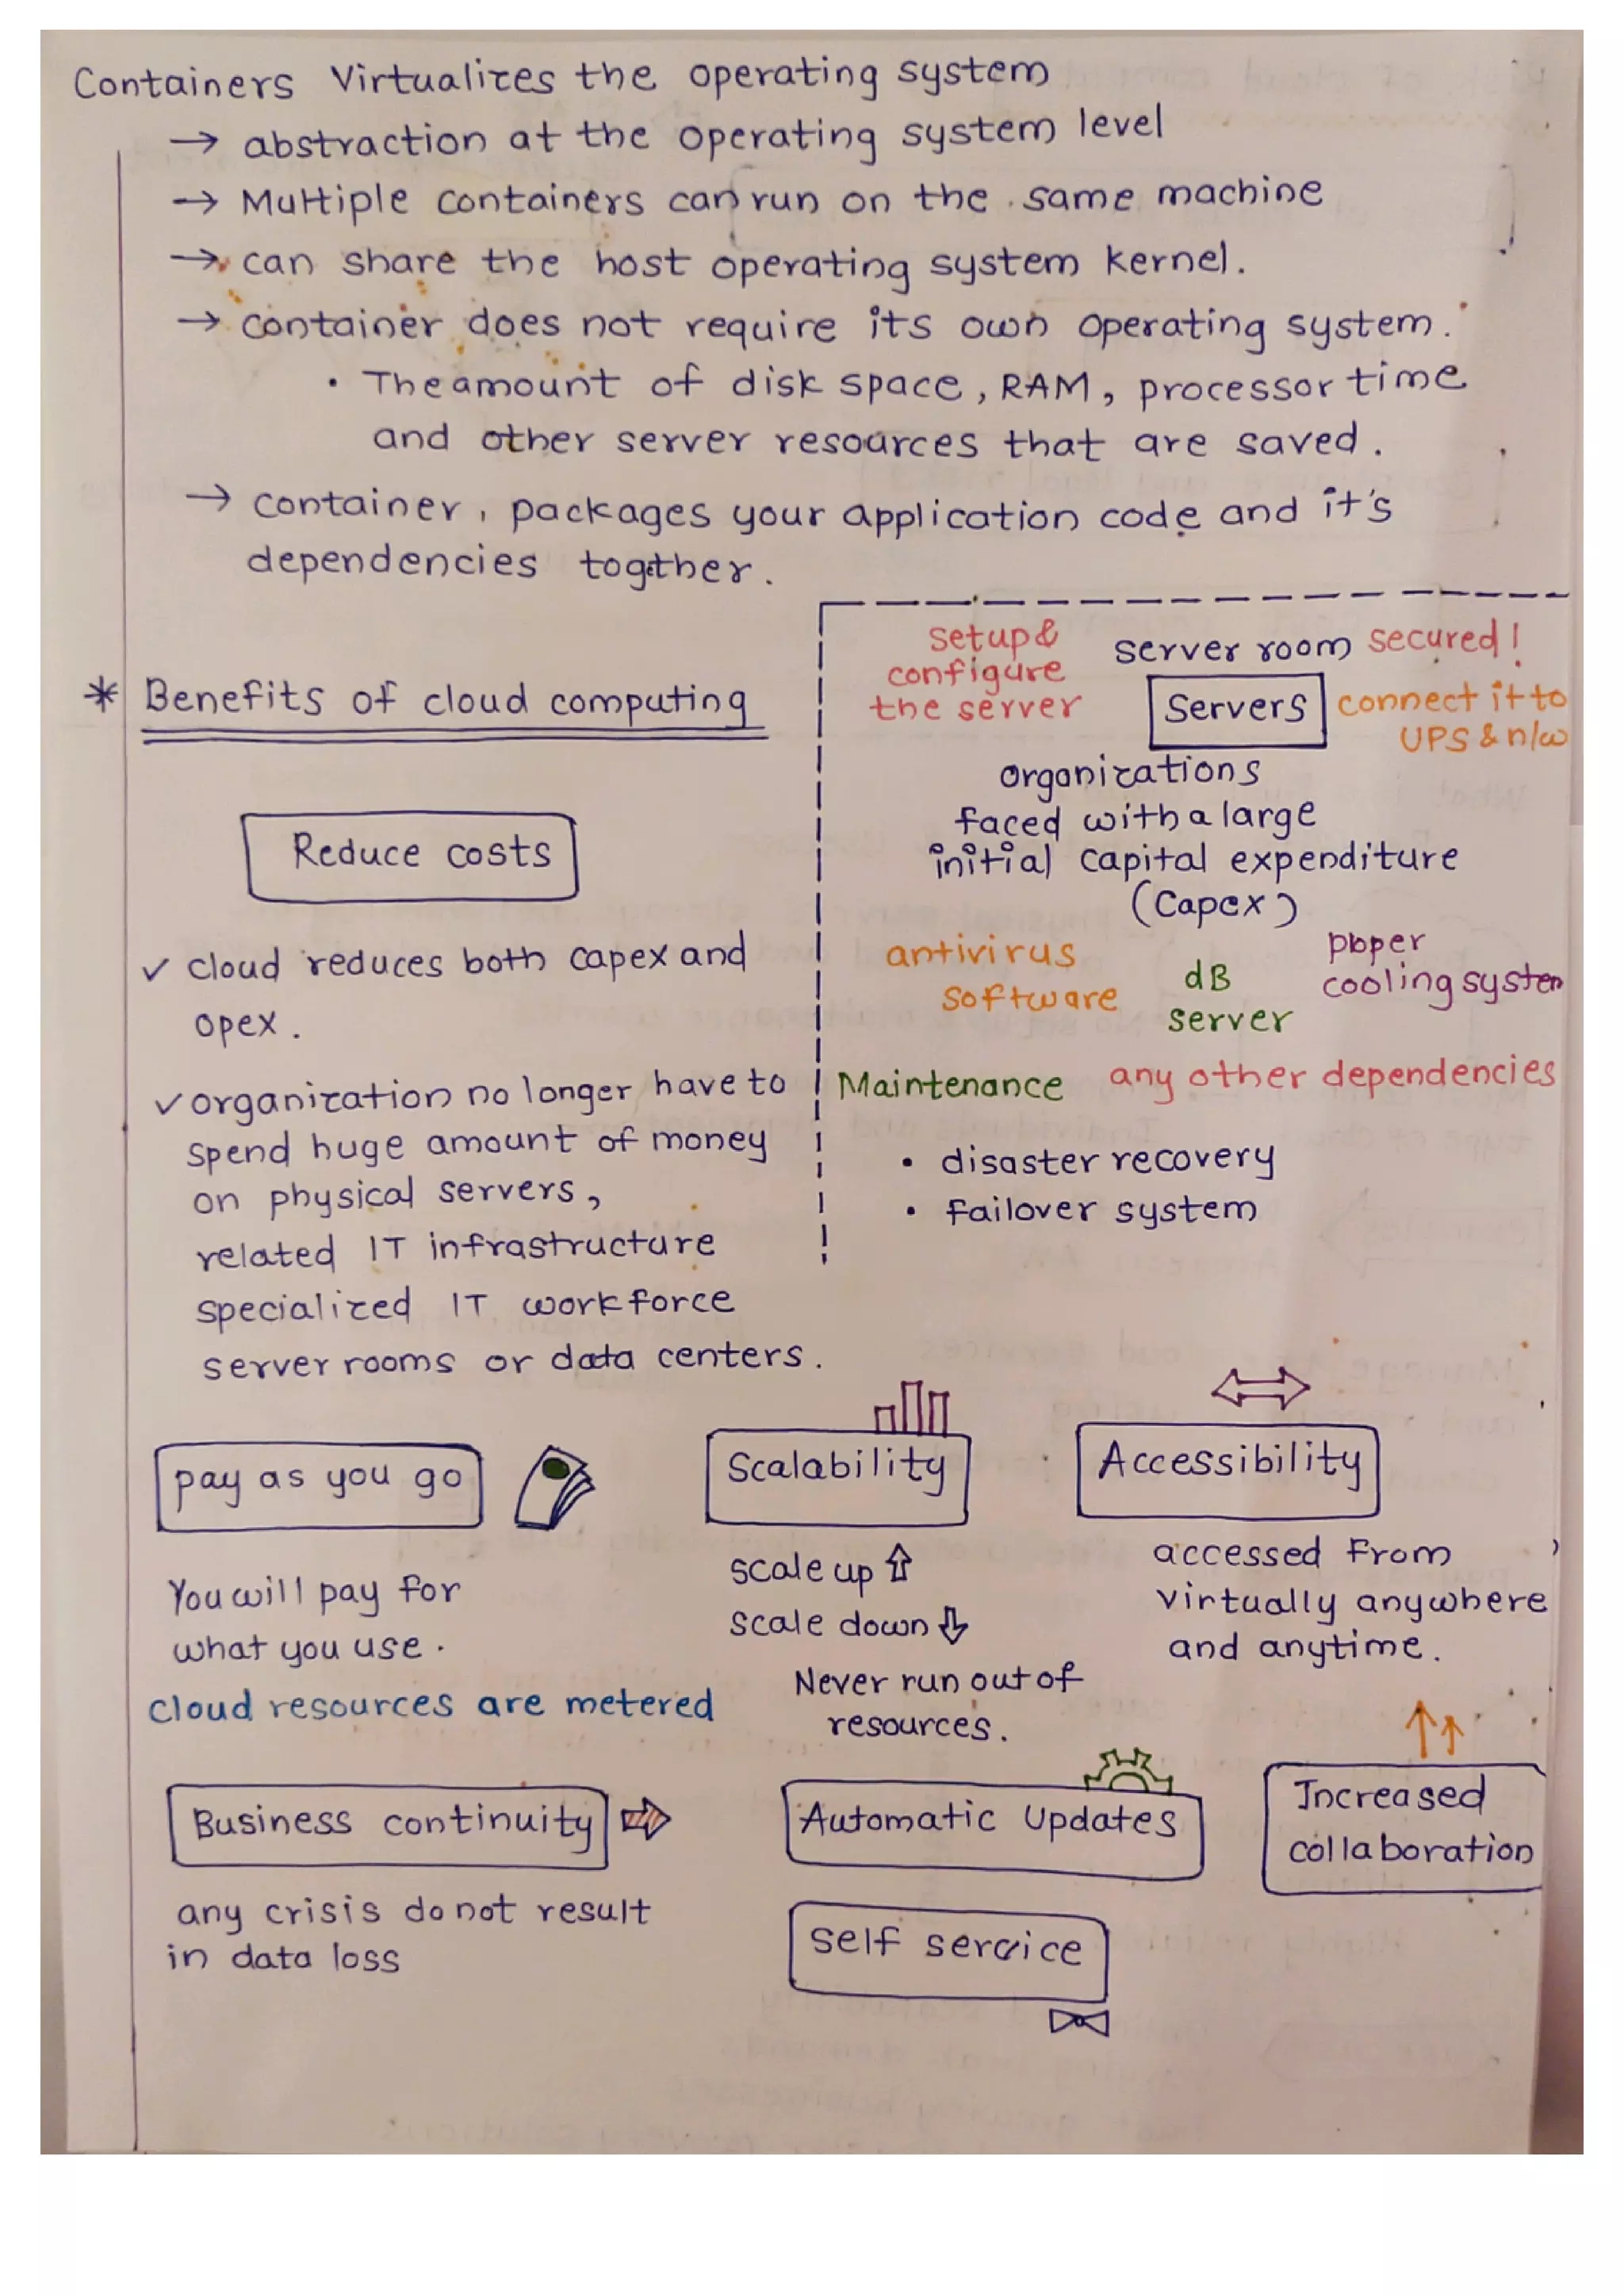 Containers Virtualizes the operating system
→ abstraction at the operating system level
→ Multiple containers can run on the same machine
→ can share the host operating system kernel.
→ container does not require its own operating system.
• The amount of disk space, RAM, processor time
and other server resources that are saved.
→ container, packages your application code and it's
dependencies together.
* Benefits of cloud computing
Reduce costs
✓ cloud reduces both capex and
opex.
✓ organization no longer have to
spend huge amount of money
on physical servers,
related IT infrastructure
specialized IT workforce
server rooms or data centers.
setup &
configure
the server
server room secured!
Servers
connect it to
UPS & n/w
organizations
faced with a large
initial capital expenditure
(Capex)
antivirus
software
dB
server
pbper
cooling system
Maintenance any other dependencies
• disaster recovery
• failover system
pay as you go
You will pay for
what you use.
cloud resources are metered
Scalability
scale up ⇧
scale down ⇩
Never run out of
resources.
Accessibility
accessed From
virtually anywhere
and anytime.
Business continuity
any crisis do not result
in data loss
Automatic Updates
Self service
Increased
collaboration